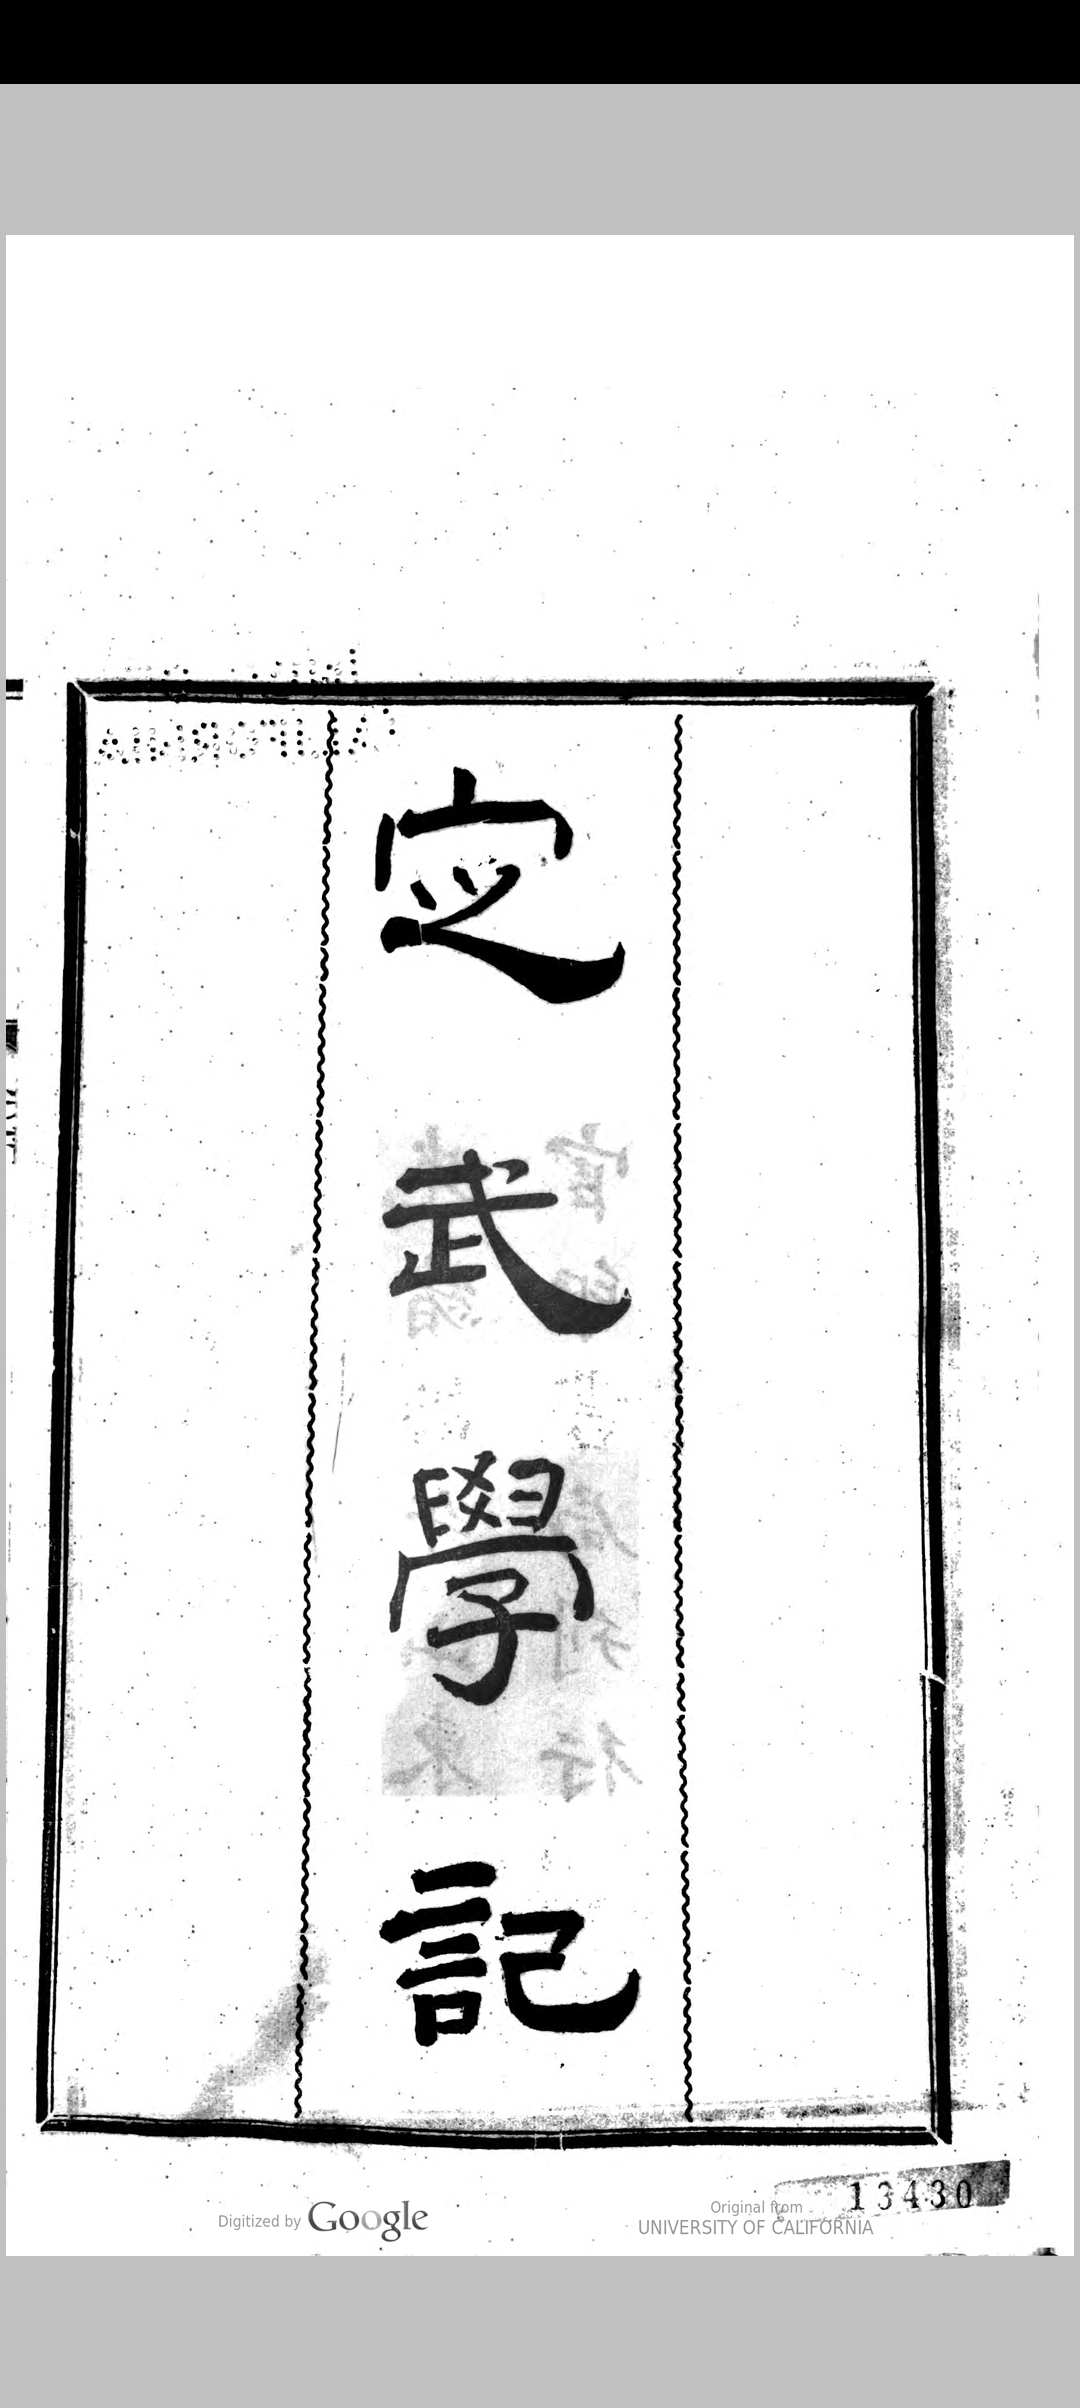 定武學記
13430
Digitized by Google
Original from
UNIVERSITY OF CALIFORNIA